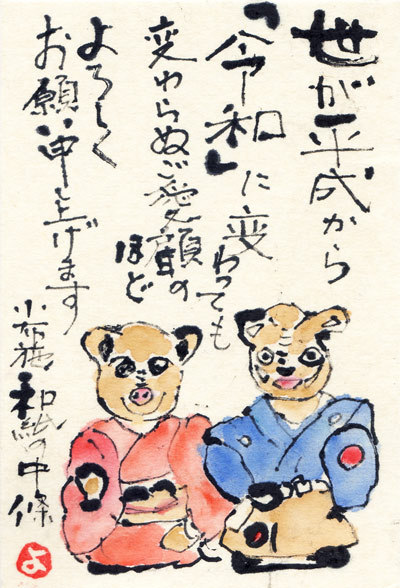 世が平成から
「令和」に変わっても
変わらぬご愛顧の
ほど
よろしく
お願い申し上げます
和紙の中條
よ